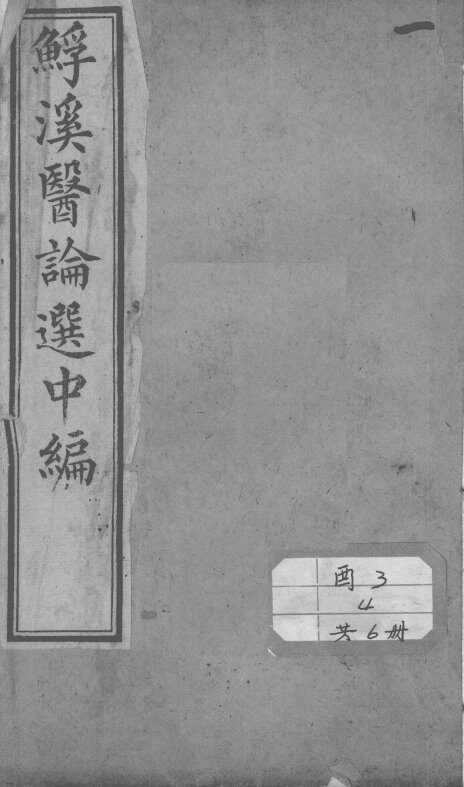 一
鯚溪醫論選中編
酉 3
4
共 6 册